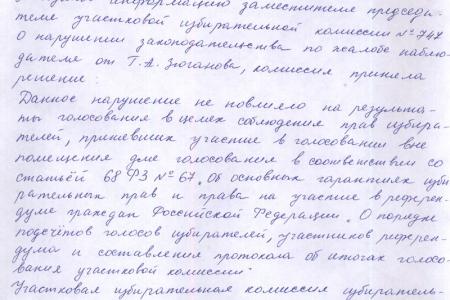 информацию заместителя председа-
теля участковой избирательной комиссии № 747
о нарушении законодательства по жалобе наблю-
дателя от Г.А. Зюганова, комиссия приняла
решение:
Данное нарушение не повлияло на результа-
ты голосования в целях соблюдения прав избира-
телей, принявших участие в голосовании вне
помещения для голосования в соответствии со
статьёй 68 ФЗ № 67 „Об основных гарантиях изби-
рательных прав и права на участие в референ-
думе граждан Российской Федерации„ О порядке
подсчётов голосов избирателей, участников референ-
дума и составления протокола об итогах голосо-
вания участковой комиссии"
Участковая избирательная комиссия избиратель-